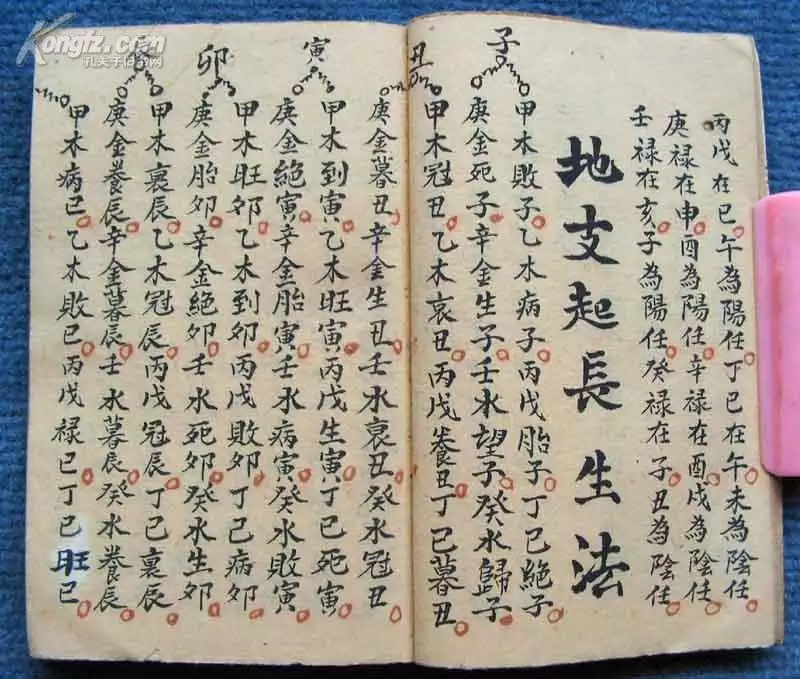 丙戊在巳午為陽任丁巳在午未為陰任
庚禄在申酉為陽任辛禄在酉戌為陰任
壬禄在亥子為陽任癸禄在子丑為陰任
地支起長生法
子
甲木敗子乙木病子丙戊胎子丁巳絕子
庚金死子辛金生子壬水望子癸水歸子
丑
甲木冠丑乙木衰丑丙戊養丑丁巳暮丑
庚金暮丑辛金生丑壬水衰丑癸水冠丑
寅
甲木到寅乙木旺寅丙戊生寅丁巳死寅
庚金絕寅辛金胎寅壬水病寅癸水敗寅
卯
甲木旺卯乙木到卯丙戊敗卯丁己病卯
庚金胎卯辛金絕卯壬水死卯癸水生卯
辰
甲木裏辰乙木冠辰丙戊冠辰丁巳裏辰
庚金養辰辛金暮辰壬水暮辰癸水養辰
甲木病巳乙木敗巳丙戊禄巳丁巳旺巳
Kongfz.com
孔夫子旧书网